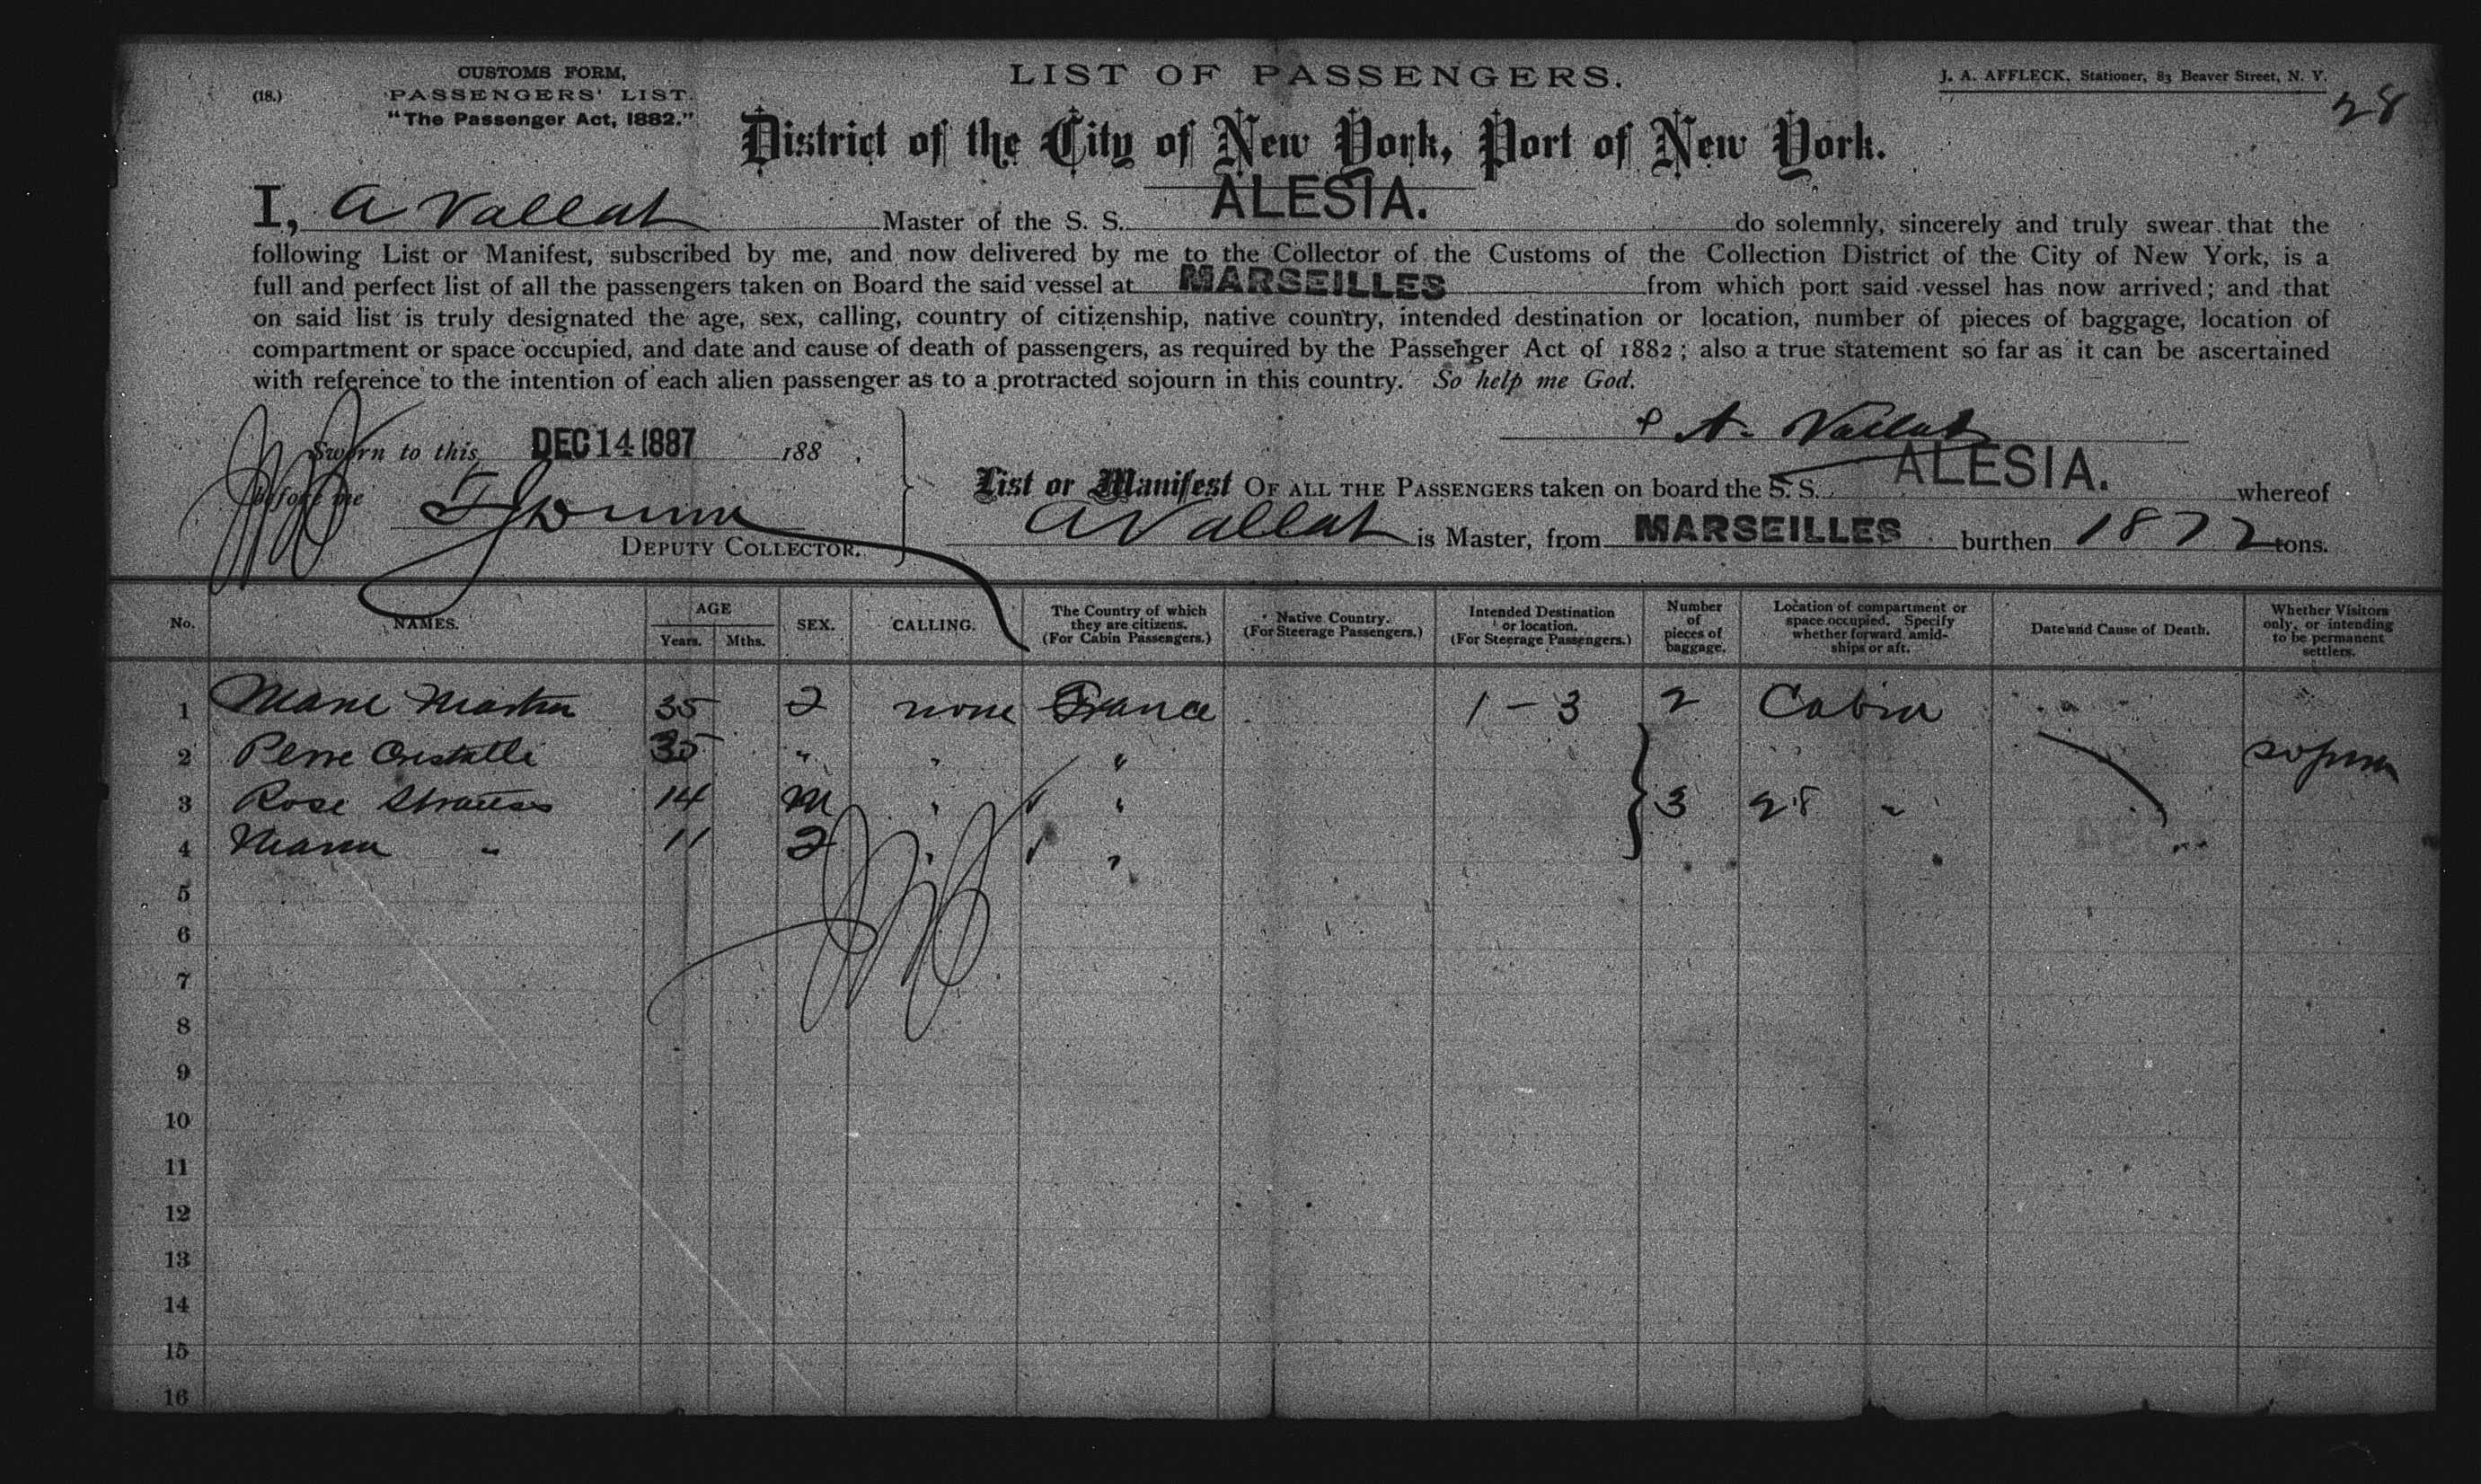 (18.)
CUSTOMS FORM,
PASSENGERS' LIST.
"The Passenger Act, 1882."
LIST OF PASSENGERS.
J. A. AFFLECK, Stationer, 83 Beaver Street, N. Y.
28
District of the City of New York, Port of New York.
I, A Vallat Master of the S. S. ALESIA. do solemnly, sincerely and truly swear that the
following List or Manifest, subscribed by me, and now delivered by me to the Collector of the Customs of the Collection District of the City of New York, is a
full and perfect list of all the passengers taken on Board the said vessel at MARSEILLES from which port said vessel has now arrived; and that
on said list is truly designated the age, sex, calling, country of citizenship, native country, intended destination or location, number of pieces of baggage, location of
compartment or space occupied, and date and cause of death of passengers, as required by the Passenger Act of 1882; also a true statement so far as it can be ascertained
with reference to the intention of each alien passenger as to a protracted sojourn in this country. So help me God.
A. Vallat
Sworn to this DEC 14 1887 188 .
before me
DEPUTY COLLECTOR.
List or Manifest OF ALL THE PASSENGERS taken on board the S. S. ALESIA. whereof
A Vallat is Master, from MARSEILLES burthen 1872 tons.
No. NAMES. AGE Years. Mths. SEX. CALLING. The Country of which they are citizens. (For Cabin Passengers.) Native Country. (For Steerage Passengers.) Intended Destination or location. (For Steerage Passengers.) Number of pieces of baggage. Location of compartment or space occupied. Specify whether forward, amidships or aft. Date and Cause of Death. Whether Visitors only, or intending to be permanent settlers.
1 Marie Martin 35 2 none France 1 - 3 2 Cabin
2 35 " " "
3 Rose Strauss 14 M " " 3 28 "
4 " 11 2 " "
5
6
7
8
9
10
11
12
13
14
15
16